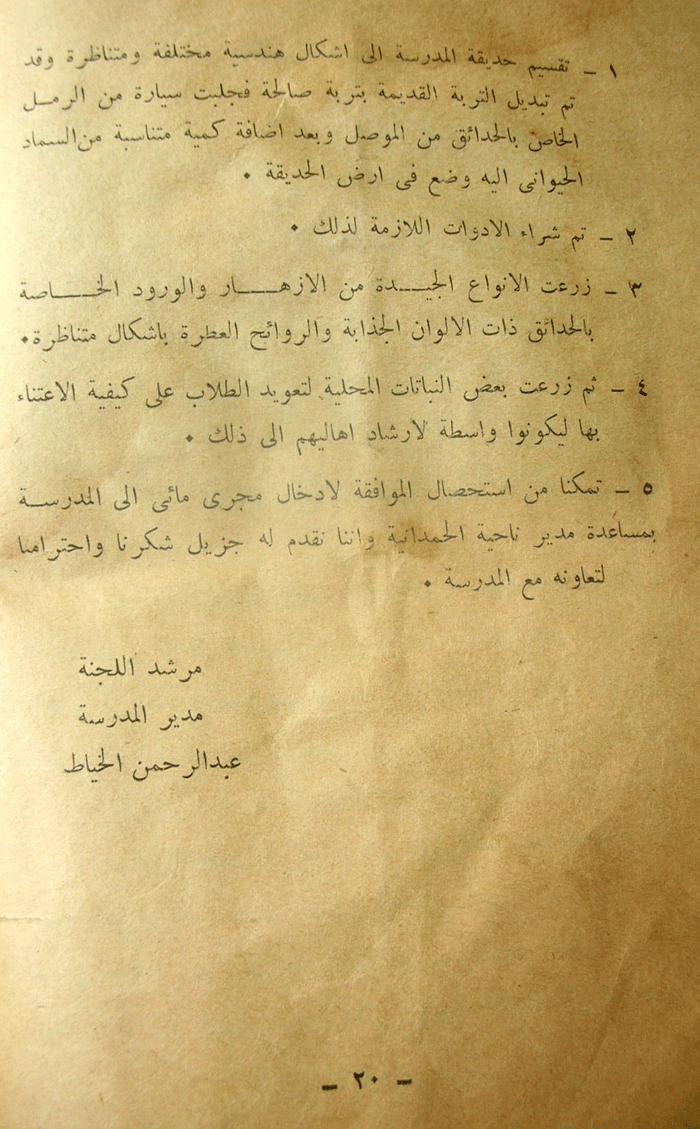 ١ ـ تقسيم حديقة المدرسة الى اشكال هندسية مختلفة ومتناظرة وقد
تم تبديل التربة القديمة بتربة صالحة فجلبت سيارة من الرمـل
الخاص بالحدائق من الموصل وبعد اضافة كمية متناسبة من السماد
الحيوانى اليه وضع فى ارض الحديقة ٠
٢ ـ تم شراء الادوات اللازمة لذلك ٠
٣ ـ زرعت الانواع الجيـــدة من الازهـــــار والورود الخـــــاصة
بالحدائق ذات الالوان الجذابة والروائح العطرة باشكال متناظرة٠
٤ ـ ثم زرعت بعض النباتات المحلية لتعويد الطلاب على كيفية الاعتناء
بها ليكونوا واسطة لارشاد اهاليهم الى ذلك ٠
٥ ـ تمكنا من استحصال الموافقة لادخال مجرى مائى الى المدرســة
بمساعدة مدير ناحية الحمدانية واننا نقدم له جزيل شكرنا واحترامنا
لتعاونه مع المدرسة ٠
مرشد اللجنة
مدير المدرسة
عبدالرحمن الخياط
ـ ٢٠ ـ